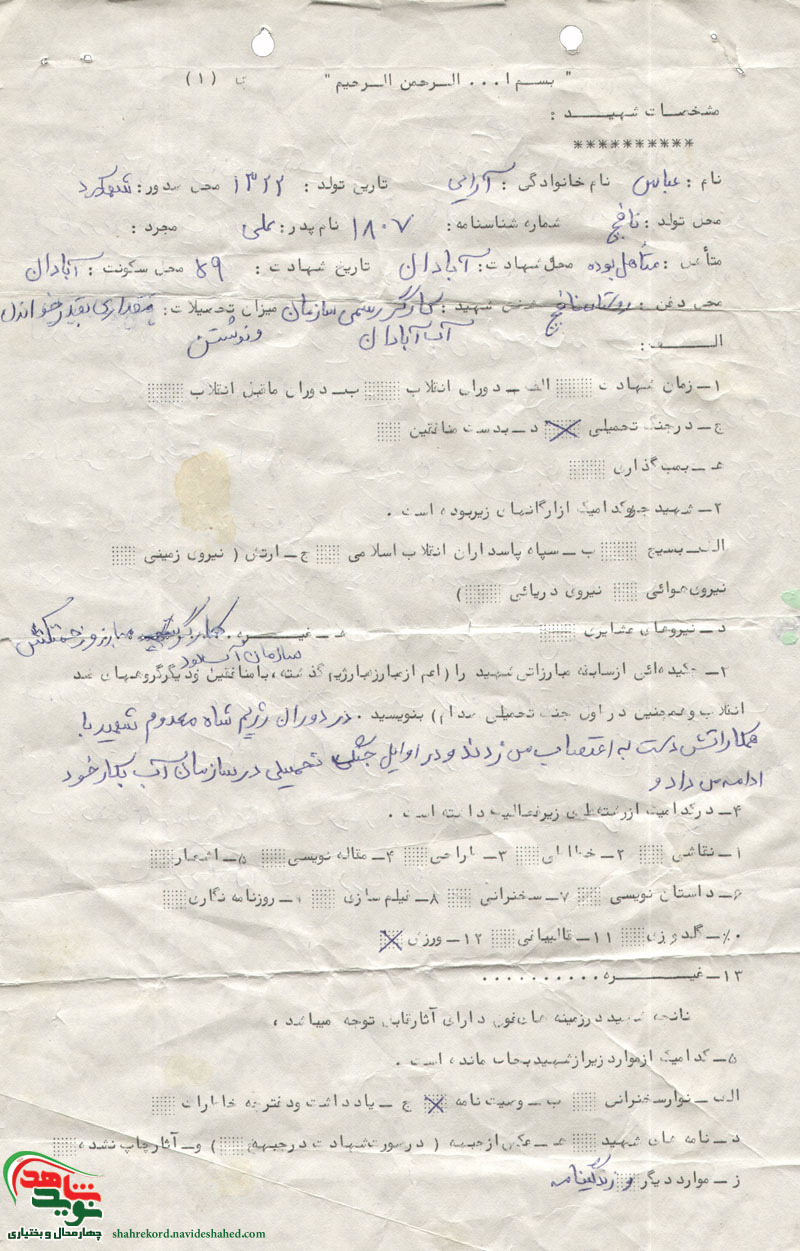 " بسم ا... الرحمن الرحیم " (۱)
مشخصات شهید :
**********
نام : عباس نام خانوادگی : آرامی تاریخ تولد : ۱۳۲۲ محل صدور : شهرکرد
محل تولد : نافچ شماره شناسنامه : ۱۸۰۷ نام پدر : علی مجرد :
متأهل : متأهل بوده محل شهادت : آبادان تاریخ شهادت : ۵۹ محل سکونت : آبادان
محل دفن : روستای نافچ شغل شهید : کارگر رسمی سازمان میزان تحصیلات : بقدر خواندن
آب آبادان ونوشتن
الف :
۱ــ زمان شهادت الف ــ دوران انقلاب ب ــ دوران ماقبل انقلاب
ج ــ درجنگ تحمیلی د ــ بدست منافقین
هـ ــ بمب گذاری
۲ــ شهید جزو کدامیک ازارگانهای زیربوده است .
الف ــ بسیج ب ــ سپاه پاسداران انقلاب اسلامی ج ــ ارتش ( نیروی زمینی
نیروی هوائی نیروی دریائی )
د ــ نیروهای عشایری هـ ــ غیره . کارگر مبارز و زحمتکش
سازمان آب
۳ــ چکیده ائی ازسابقه مبارزاتی شهید را ( اعم ازمبارزه بارژیم گذشته ، بامنافقین ودیگرگروههای ضد
انقلاب وهمچنین دراول جنگ تحمیلی صدام ) بنویسید . در دوران رژیم شاه معدوم شهید با
همکارانش دست به اعتصاب می زدند و در اوایل جنگ تحمیلی در سازمان آب بکار خود
ادامه می داد و
۴ــ درکدامیک ازرشته های زیرفعالیت داشته است .
۱ــ نقاشی ۲ــ خطاطی ۳ــ طراحی ۴ــ مقاله نویسی ۵ــ اشعار
۶ــ داستان نویسی ۷ــ سخنرانی ۸ــ فیلم سازی ــ روزنامه نگاری
ــ گلدوزی ۱۱ــ قالیبافی ۱۲ــ ورزش
۱۳ــ غیره ..........
شهید درزمینه های فوق دارای آثارقابل توجه میباشد ،
۵ــ کدامیک ازموارد زیرازشهید بجای مانده است .
الف ــ نوارسخنرانی ب ــ وصیت نامه ج ــ یادداشت ودفترچه خاطرات
د ــ نامه های شهید هـ ــ عکس ازجبهه ( درصورت شهادت درجبهه ) و ــ آثارچاپ نشده
ز ــ موارد دیگر و زندگینامه
نوید شاهد
چهارمحال و بختیاری
shahrekord.navideshahed.com